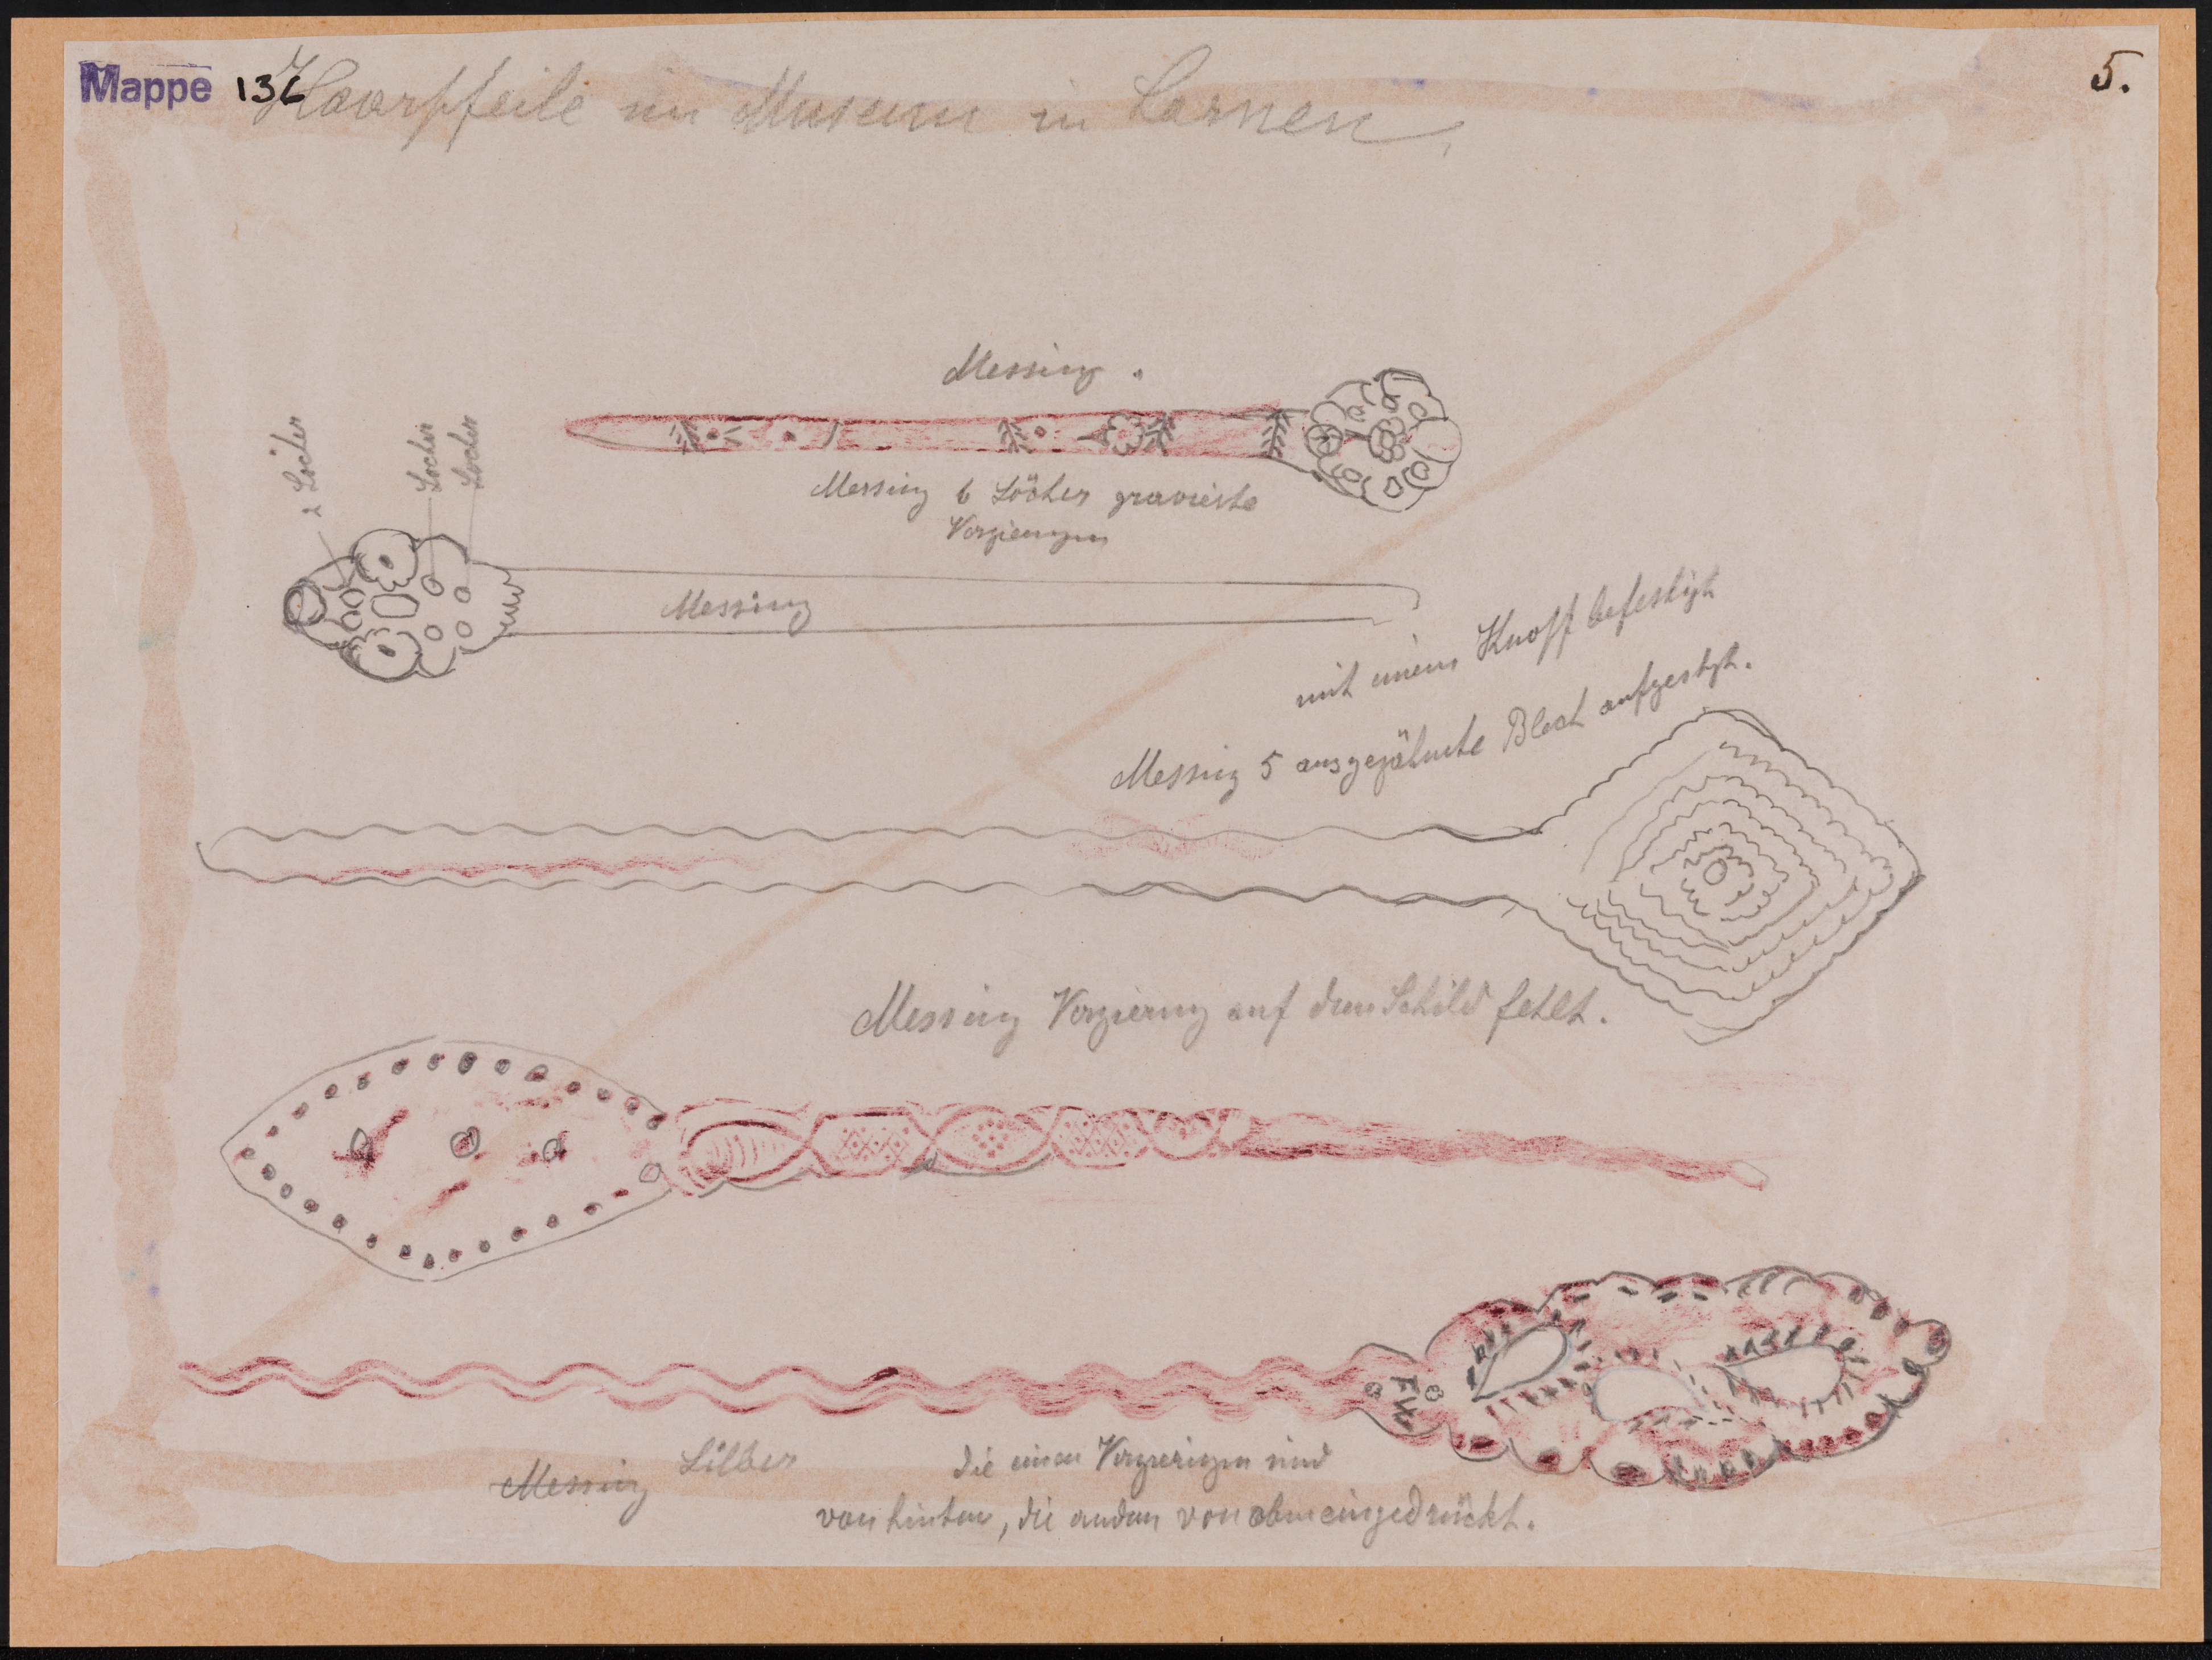 Mappe 136
5.
Haarpfeile im Museum in Sarnen.
Messing.
2 Löcher
Löcher
Löcher
Messing 6 Löcher gravierte
Verzierungen
Messing
mit einem Knopf befestigt
Messing 5 ausgezähnte Blech aufgestgt.
Messing Verzierung auf dem Schild fehlt.
FW
Messing Silber
die einen Verzierigen sind
von hinten, die andern von oben eingedrückt.